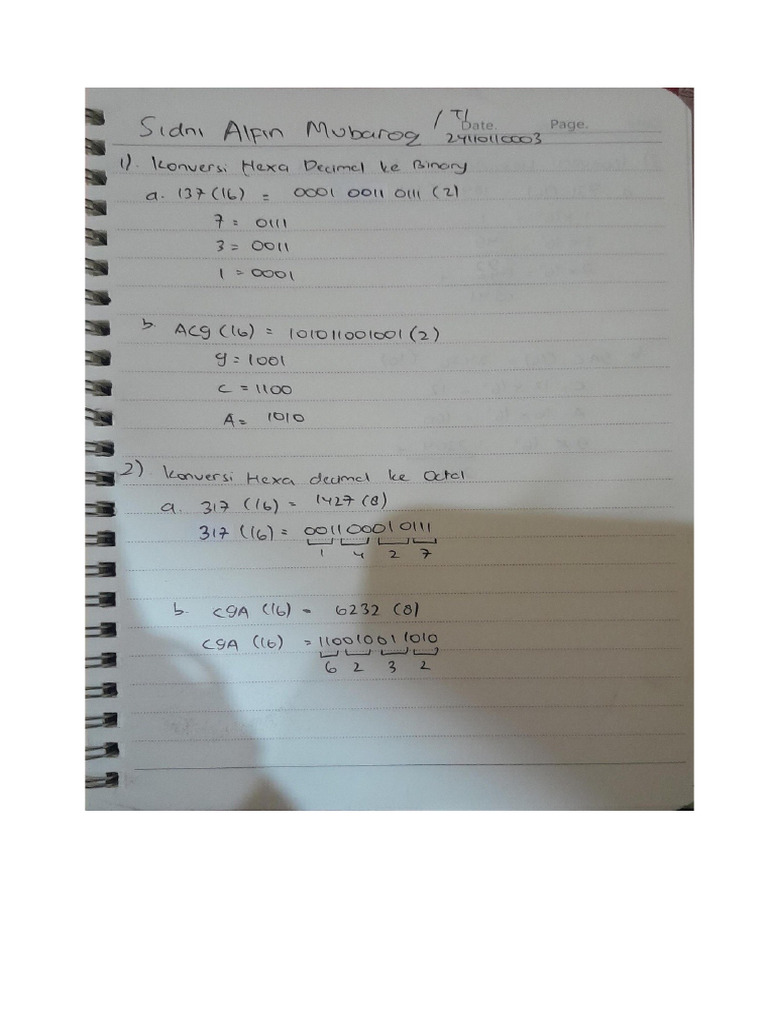 Sidni Alfin Mubaroq / TI
Date. Page.
24110110003
1). Konversi Hexa Decimal ke Binary
a. 137 (16) = 0001 0011 0111 (2)
7 = 0111
3 = 0011
1 = 0001
b. AC9 (16) = 101011001001 (2)
9 = 1001
C = 1100
A = 1010
2). Konversi Hexa decimal ke Octal
a. 317 (16) = 1427 (8)
317 (16) = 001100010111
1 4 2 7
b. C9A (16) = 6232 (8)
C9A (16) = 110010011010
6 2 3 2